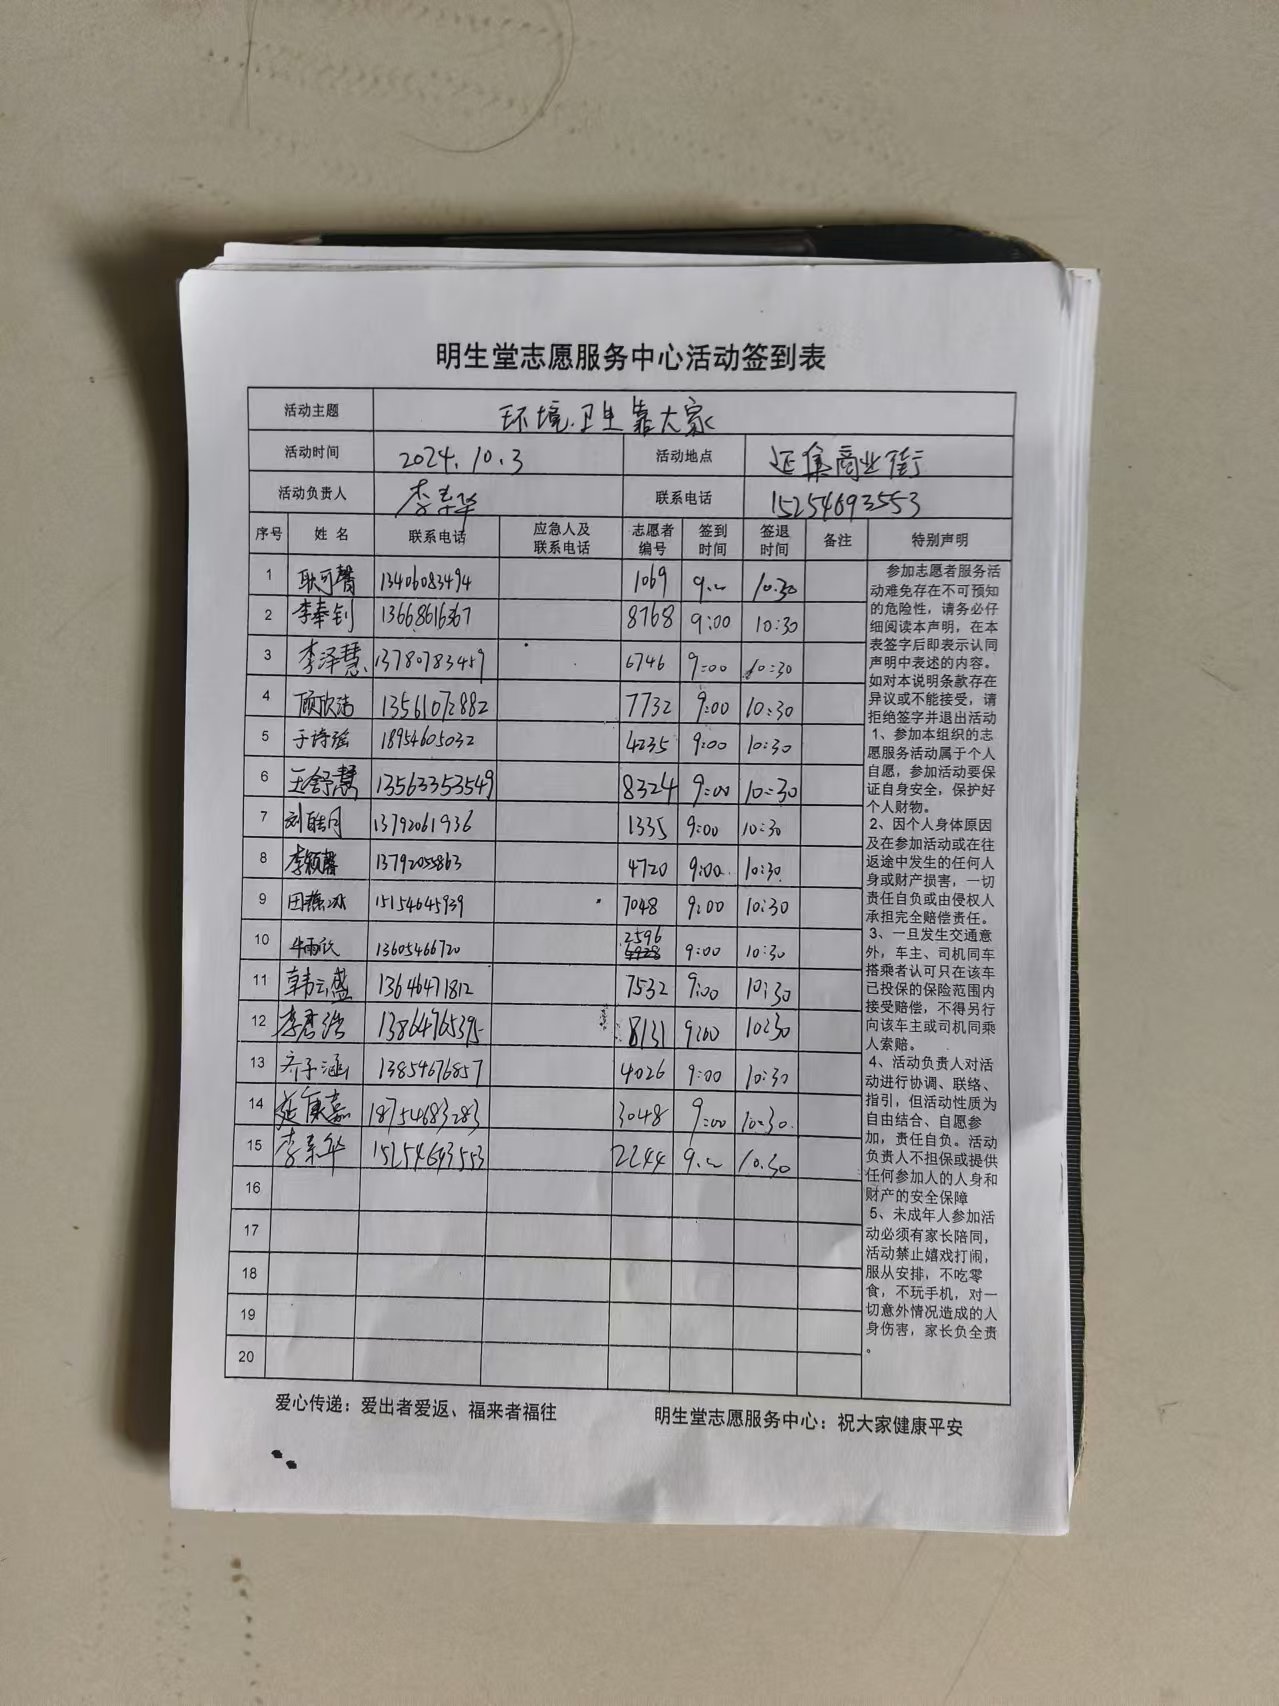 明生堂志愿服务中心活动签到表
活动主题 环境卫生靠大家
活动时间 2024.10.3 活动地点 延集商业街
活动负责人 李秀华 联系电话 15254693553
序号 姓名 联系电话 应急人及联系电话 志愿者编号 签到时间 签退时间 备注 特别声明
1 耿可馨 13406083494 1069 9:00 10:30
2 李奉钊 13668616367 8768 9:00 10:30
3 李泽慧 13780783459 6746 9:00 10:30
4 顾欣洁 13561072882 7732 9:00 10:30
5 于诗强 18954605032 4235 9:00 10:30
6 王舒慧 13563353549 8324 9:00 10:30
7 刘皓月 13792061936 1335 9:00 10:30
8 李颖馨 13792055863 4720 9:00 10:30
9 田 15154645939 7048 9:00 10:30
10 牛雨欣 13605466720 2596 9:00 10:30
11 韩云盛 13646471812 7532 9:00 10:30
12 李彦 13864765395 8131 9:00 10:30
13 齐子涵 13854676857 4026 9:00 10:30
14 延康嘉 18754683283 3048 9:00 10:30
15 李秀华 15254693553 2244 9:00 10:30
16
17
18
19
20
参加志愿者服务活
动难免存在不可预知
的危险性，请务必仔
细阅读本声明，在本
表签字后即表示认同
声明中表述的内容。
如对本说明条款存在
异议或不能接受，请
拒绝签字并退出活动
1、参加本组织的志
愿服务活动属于个人
自愿，参加活动要保
证自身安全，保护好
个人财物。
2、因个人身体原因
及在参加活动或在往
返途中发生的任何人
身或财产损害，一切
责任自负或由侵权人
承担完全赔偿责任。
3、一旦发生交通意
外，车主、司机同车
搭乘者认可只在该车
已投保的保险范围内
接受赔偿，不得另行
向该车主或司机同乘
人索赔。
4、活动负责人对活
动进行协调、联络、
指引，但活动性质为
自由结合、自愿参
加，责任自负。活动
负责人不担保或提供
任何参加人的人身和
财产的安全保障
5、未成年人参加活
动必须有家长陪同，
活动禁止嬉戏打闹，
服从安排，不吃零
食，不玩手机，对一
切意外情况造成的人
身伤害，家长负全责
。
爱心传递：爱出者爱返、福来者福往 明生堂志愿服务中心：祝大家健康平安